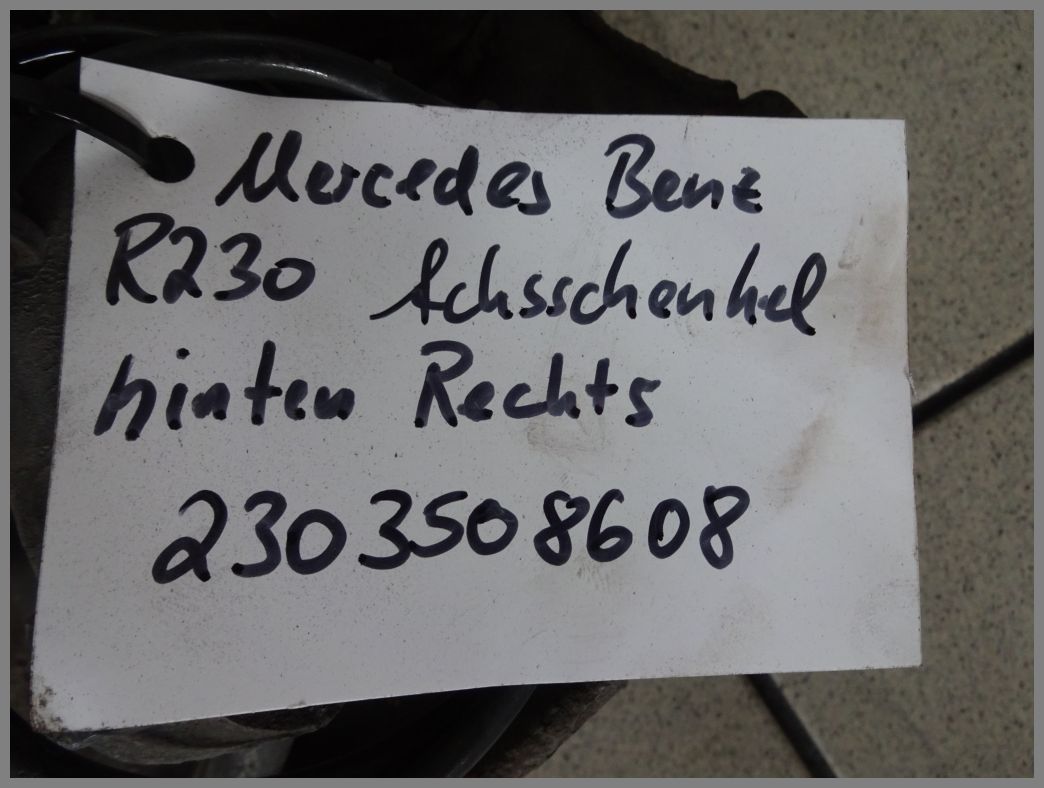 Mercedes Benz
R230 Achsschenkel
hinten Rechts
2303508608